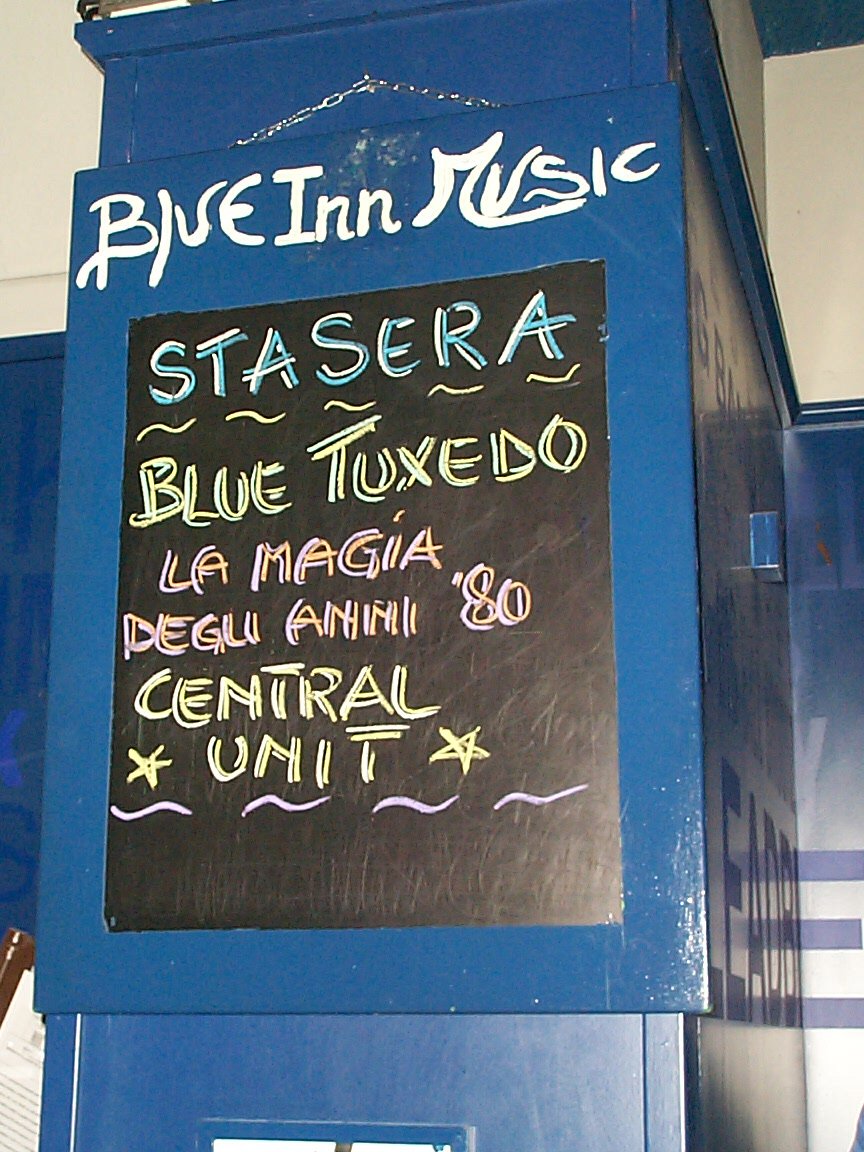 BLUE INN MUSIC
STASERA
BLUE TUXEDO
LA MAGIA
DEGLI ANNI '80
CENTRAL
UNIT